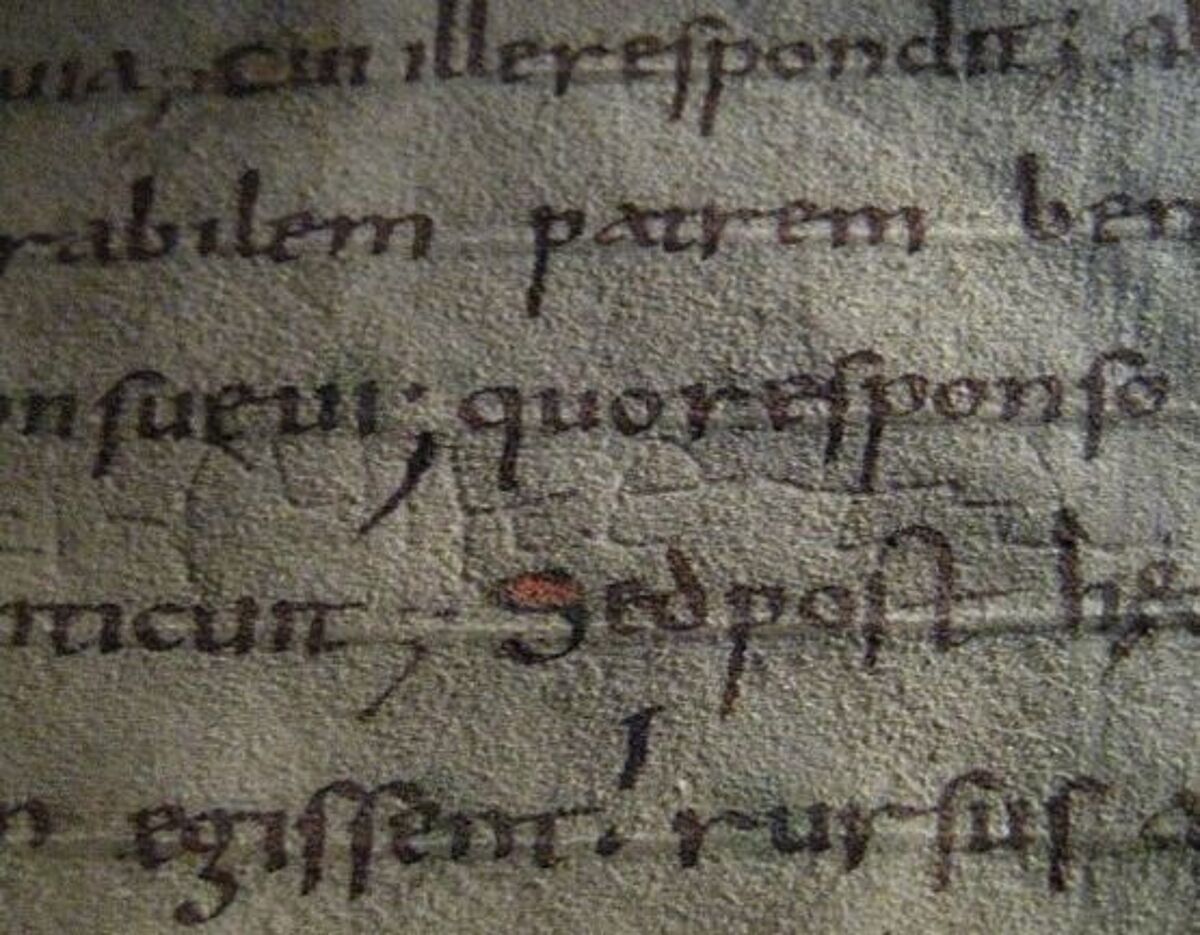 uia; cui ille respondit; a
rabilem patrem ben
onsuęui; quo responso
nticuit; Sed post hę
n egissent; rursus a